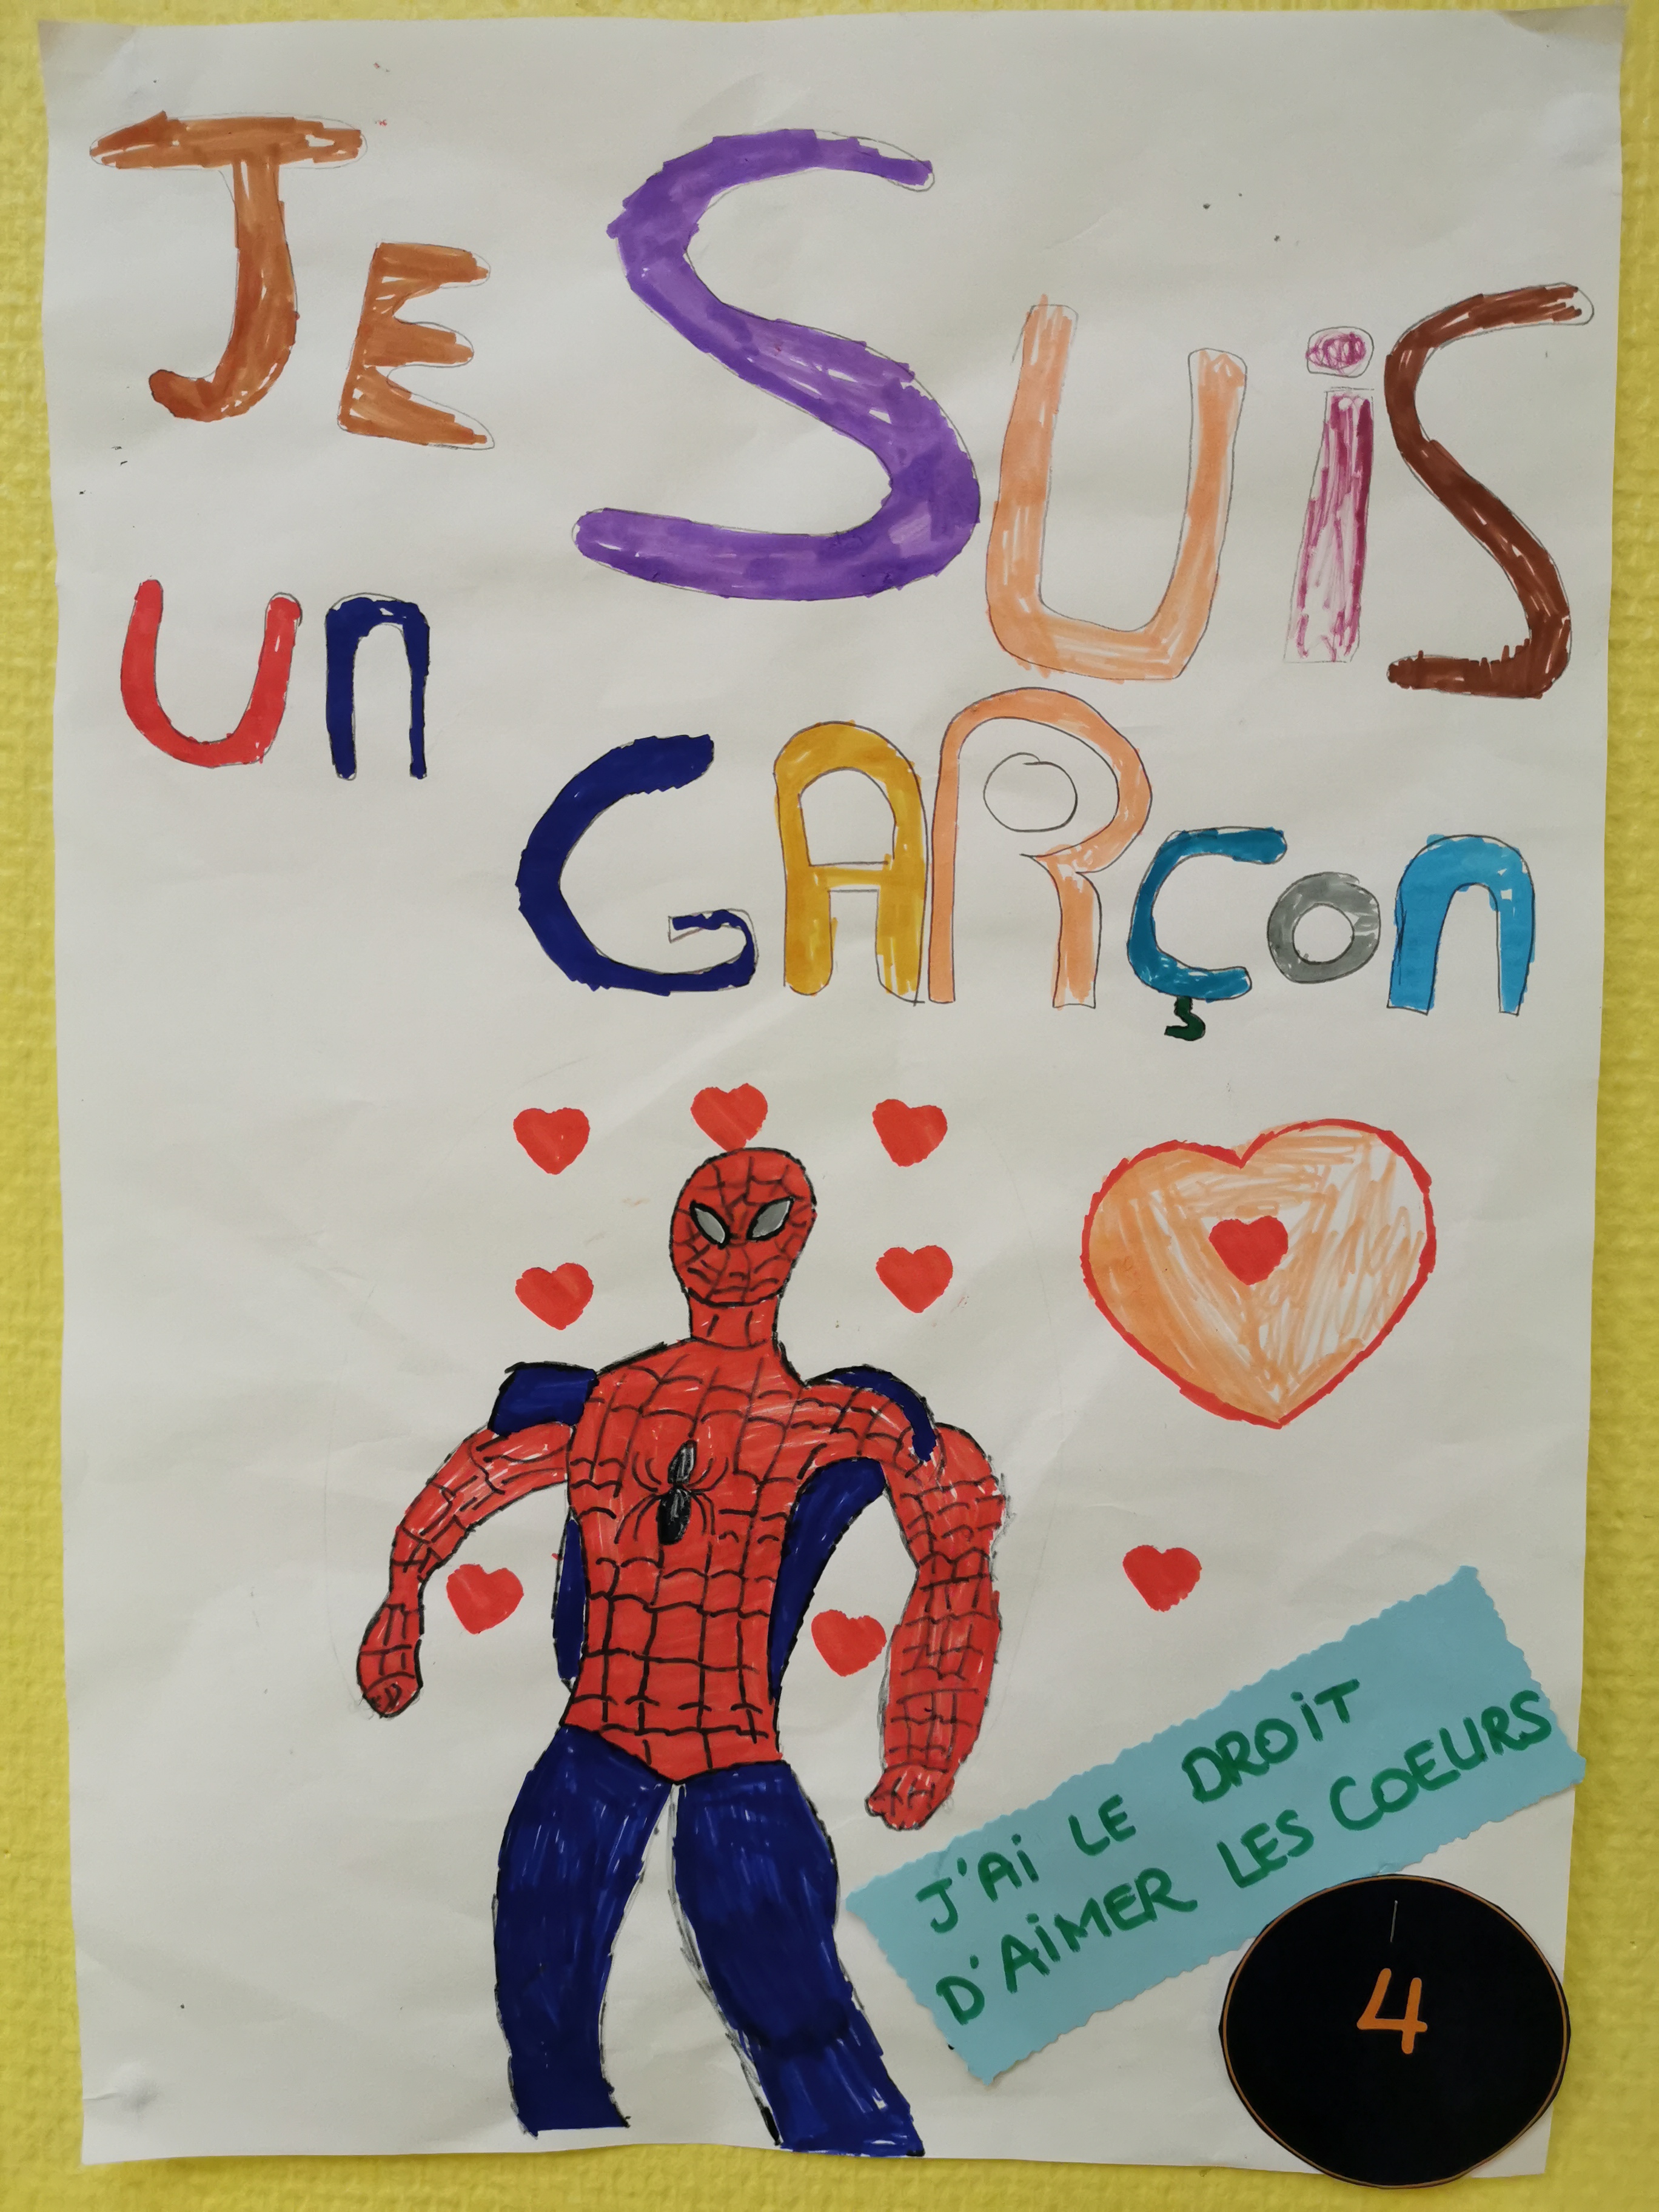 JE SUiS
Un
GARÇon
J'Ai LE DROiT
D'AiMER LES COEURS
4